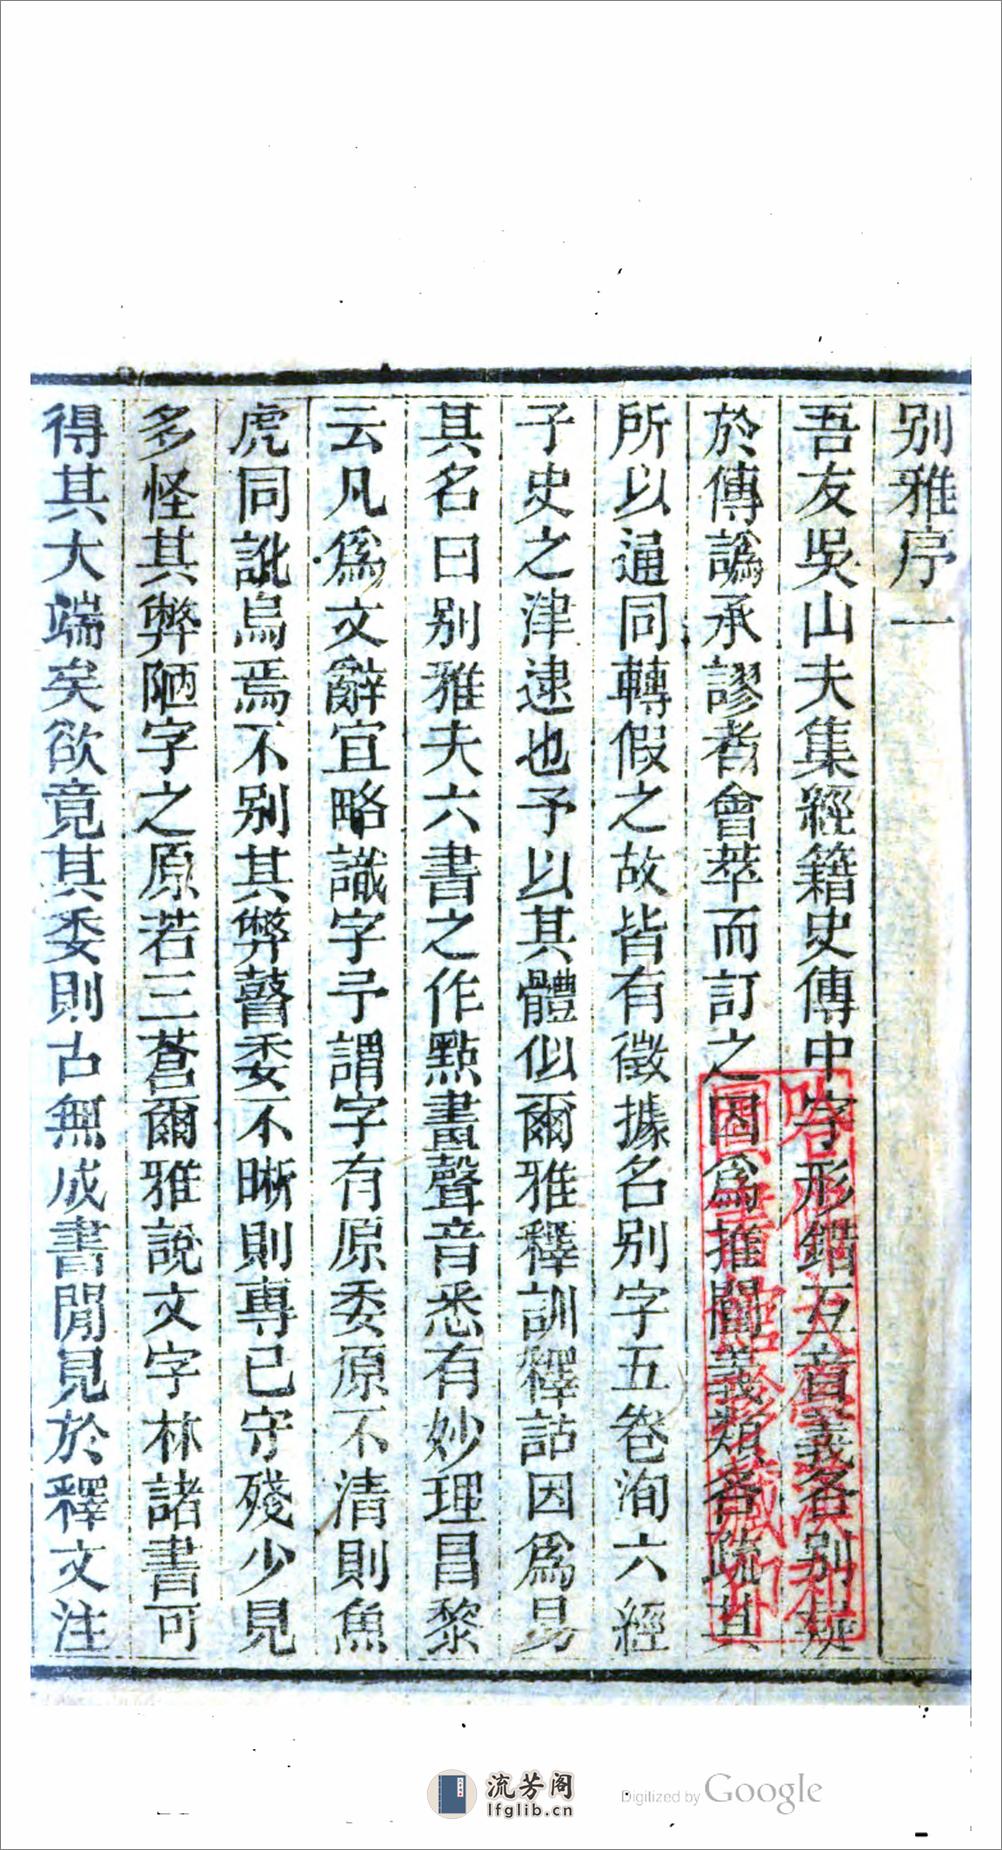 别雅序一
吾友吳山夫集經籍史傳中字形錯互音義各别疑
於傳譌承謬者會萃而訂之因爲推闡義類各疏其
所以通同轉假之故皆有徵據名别字五卷洵六經
子史之津逮也予以其體似爾雅釋訓釋詁因爲易
其名曰别雅夫六書之作點畫聲音悉有妙理昌黎
云凡爲文辭宜略識字予謂字有原委原不清則魚
虎同訛烏焉不别其弊瞀委不晰則專己守殘少見
多怪其弊陋字之原若三蒼爾雅說文字林諸書可
得其大端矣欲竟其委則古無成書閒見於釋文注
哈佛大學漢和
圖書館珍藏印
流芳阁
lfglib.cn
Digitized by Google